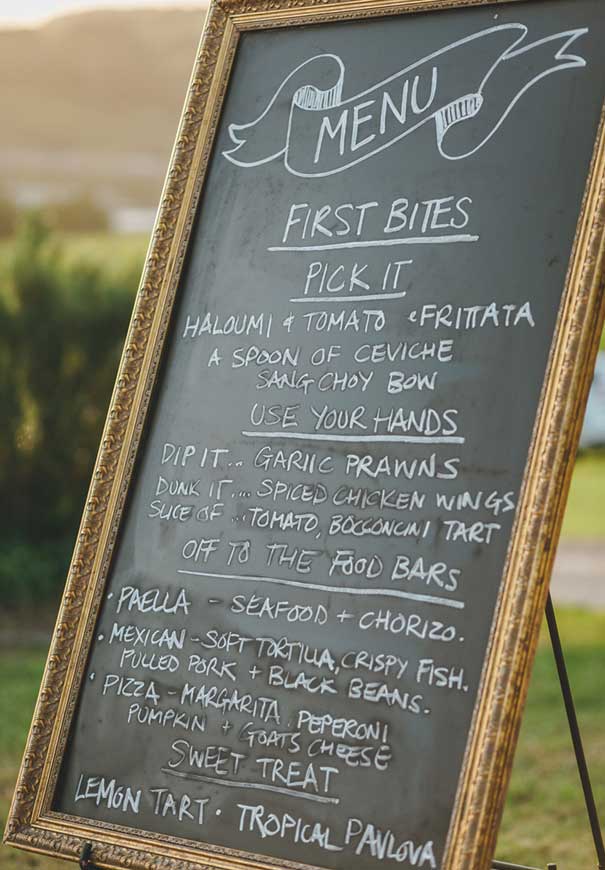 MENU
FIRST BITES
PICK IT
HALOUMI & TOMATO & FRITTATA
A SPOON OF CEVICHE
SANG CHOY BOW
USE YOUR HANDS
DIP IT... GARLIC PRAWNS
DUNK IT... SPICED CHICKEN WINGS
SLICE OF... TOMATO, BOCCONCINI TART
OFF TO THE FOOD BARS
• PAELLA - SEAFOOD + CHORIZO.
• MEXICAN - SOFT TORTILLA, CRISPY FISH.
PULLED PORK + BLACK BEANS.
• PIZZA - MARGARITA, PEPERONI
PUMPKIN + GOATS CHEESE
SWEET TREAT
LEMON TART • TROPICAL PAVLOVA